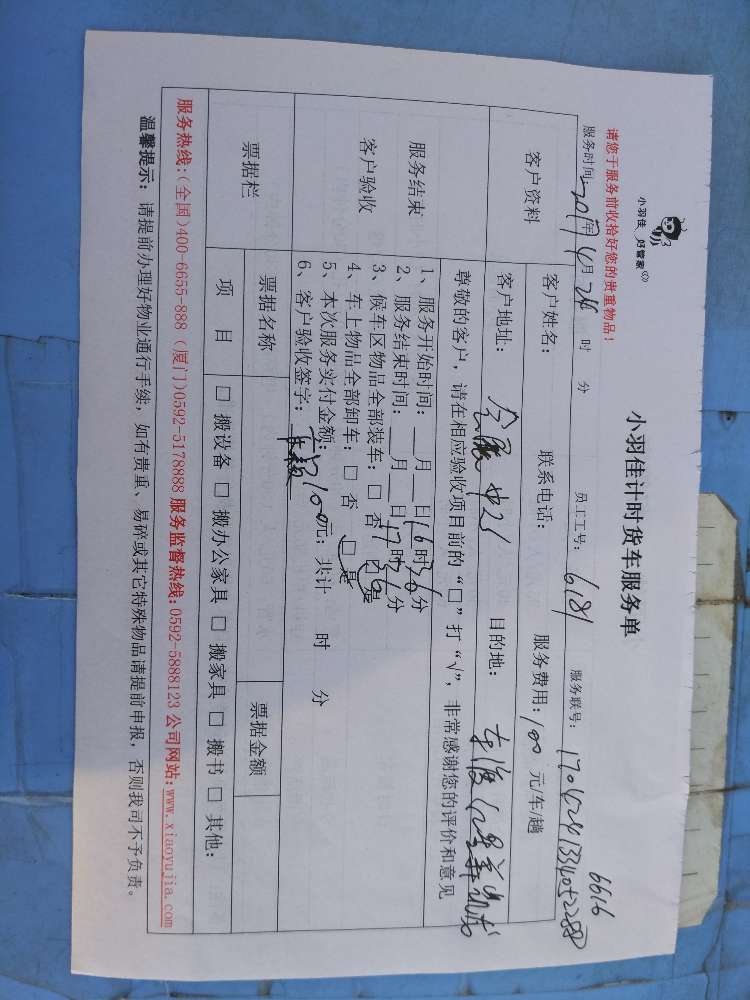 小羽佳 好管家
小羽佳计时货车服务单
请您于服务前收拾好您的贵重物品！
6616
服务时间： 年 月 时 分 员工工号：6181 服务联号：
客户资料
客户姓名： 联系电话： 服务费用：100 元/车/趟
客户地址： 目的地：
尊敬的客户，请在相应验收项目前的“□”打“√”，非常感谢您的评价和意见
服务结束
客户验收
1、服务开始时间：__月__日16时36分
2、服务结束时间：__月__日17时16分
3、候车区物品全部装车：□ 否 □ 是
4、车上物品全部卸车：□ 否 □ 是
5、本次服务实付金额：100元；共计 时 分
6、客户验收签字：
票据栏
票据名称 票据金额
项 目 □ 搬设备 □ 搬办公家具 □ 搬家具 □ 搬书 □ 其他：
服务热线：(全国)400-6655-888 (厦门)0592-5178888 服务监督热线：0592-5888123 公司网站：www.xiaoyujia.com
温馨提示：请提前办理好物业通行手续，如有贵重、易碎或其它特殊物品请提前申报，否则我司不予负责。